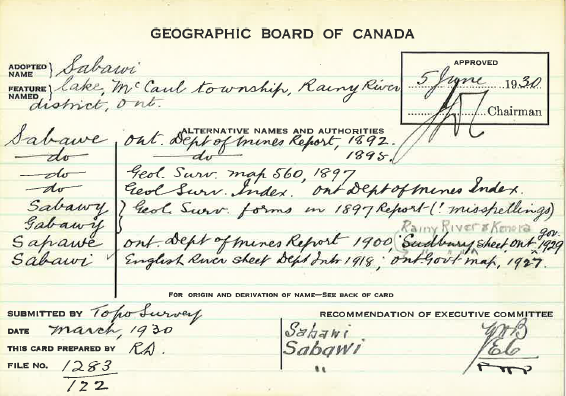 GEOGRAPHIC BOARD OF CANADA
ADOPTED NAME } Sabawi
FEATURE NAMED } lake, McCaul township, Rainy River
district, Ont.
APPROVED
5 June 1930
Chairman
ALTERNATIVE NAMES AND AUTHORITIES
Sabawe Ont. Dept of Mines Report, 1892.
do do 1895.
do Geol. Surv. map 560, 1897
do Geol Surv. Index. Ont Dept of Mines Index.
Sabawy } Geol. Surv. forms in 1897 Report (! misspellings)
Gabawy
Rainy River & Kenora
Sapawe Ont. Dept of Mines Report 1900, Sudbury sheet, Ont. gov. 1929
Sabawi English River sheet Dept Intr 1918; Ont Govt map, 1927.
FOR ORIGIN AND DERIVATION OF NAME—SEE BACK OF CARD
SUBMITTED BY Topo Survey
RECOMMENDATION OF EXECUTIVE COMMITTEE
DATE March, 1930
Sabawi
THIS CARD PREPARED BY RD.
Sabawi
FILE NO. 1283
"
122